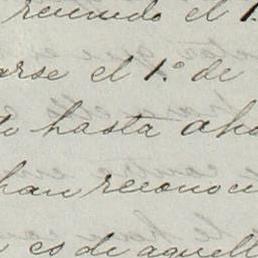 reunido el 1.
arse el 1.º de
do hasta aho
han reconoci
es de aquell